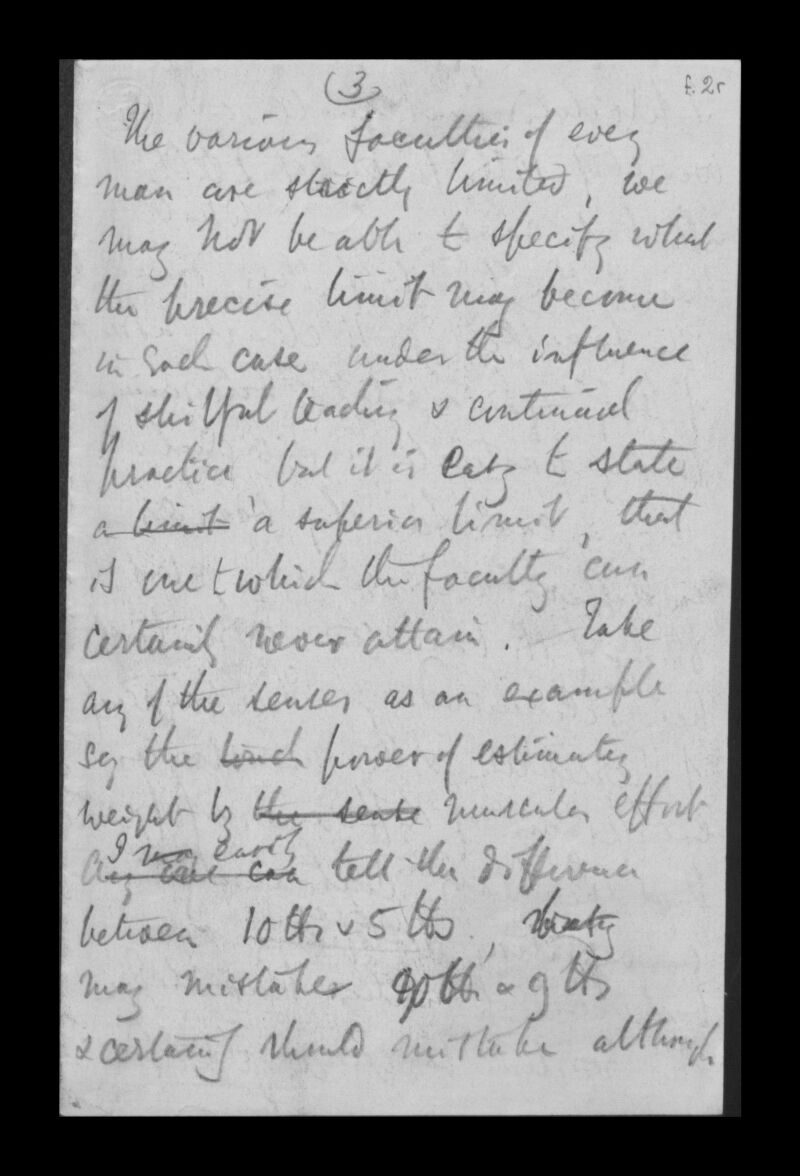 (3)
f. 2r
The various faculties of every
man are strictly limited, we
may not be able to specify what
the precise limit may become
in each case under the influence
of skilful teaching & continued
practice but it is easy to state
a limit a superior limit, that
is one to which the faculty can
certainly never attain. Take
any of the senses as an example
say the touch power of estimating
weight by the sense muscular effort
I easily
Any one can tell the difference
between 10 lbs & 5 lbs,
may mistake 10 lbs & 9 lbs
& certainly should mistake although